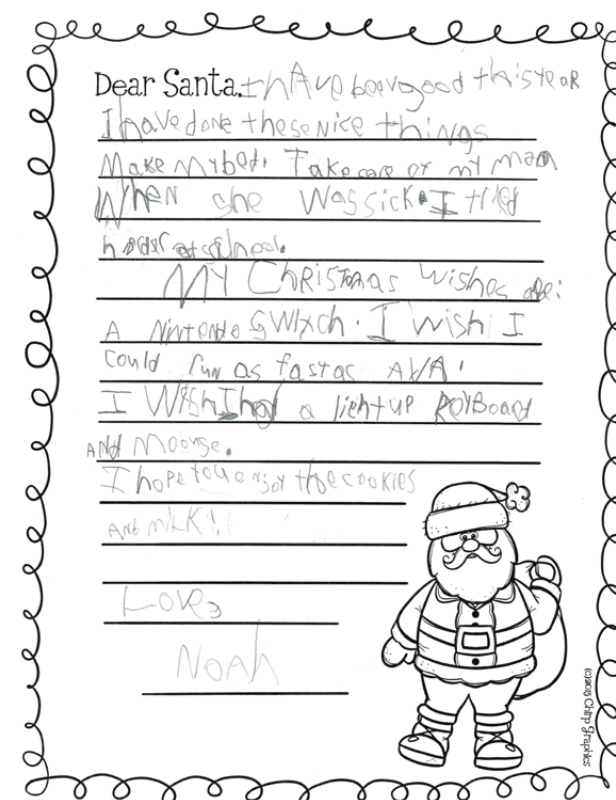 Dear Santa, I hAve been good this yeAR
I have done these Nice things
Make My bed. Take care of my mom
When she was sick. I tried
harder at school.
My Christmas wishes are:
A Nintendo SWixch. I wish I
could run as fast as AVA.
I Wish I had a light up Keyboard
And Moouse.
I hope you enjoy the cookies
And milk!
Love,
NoAh
Chirp Graphics